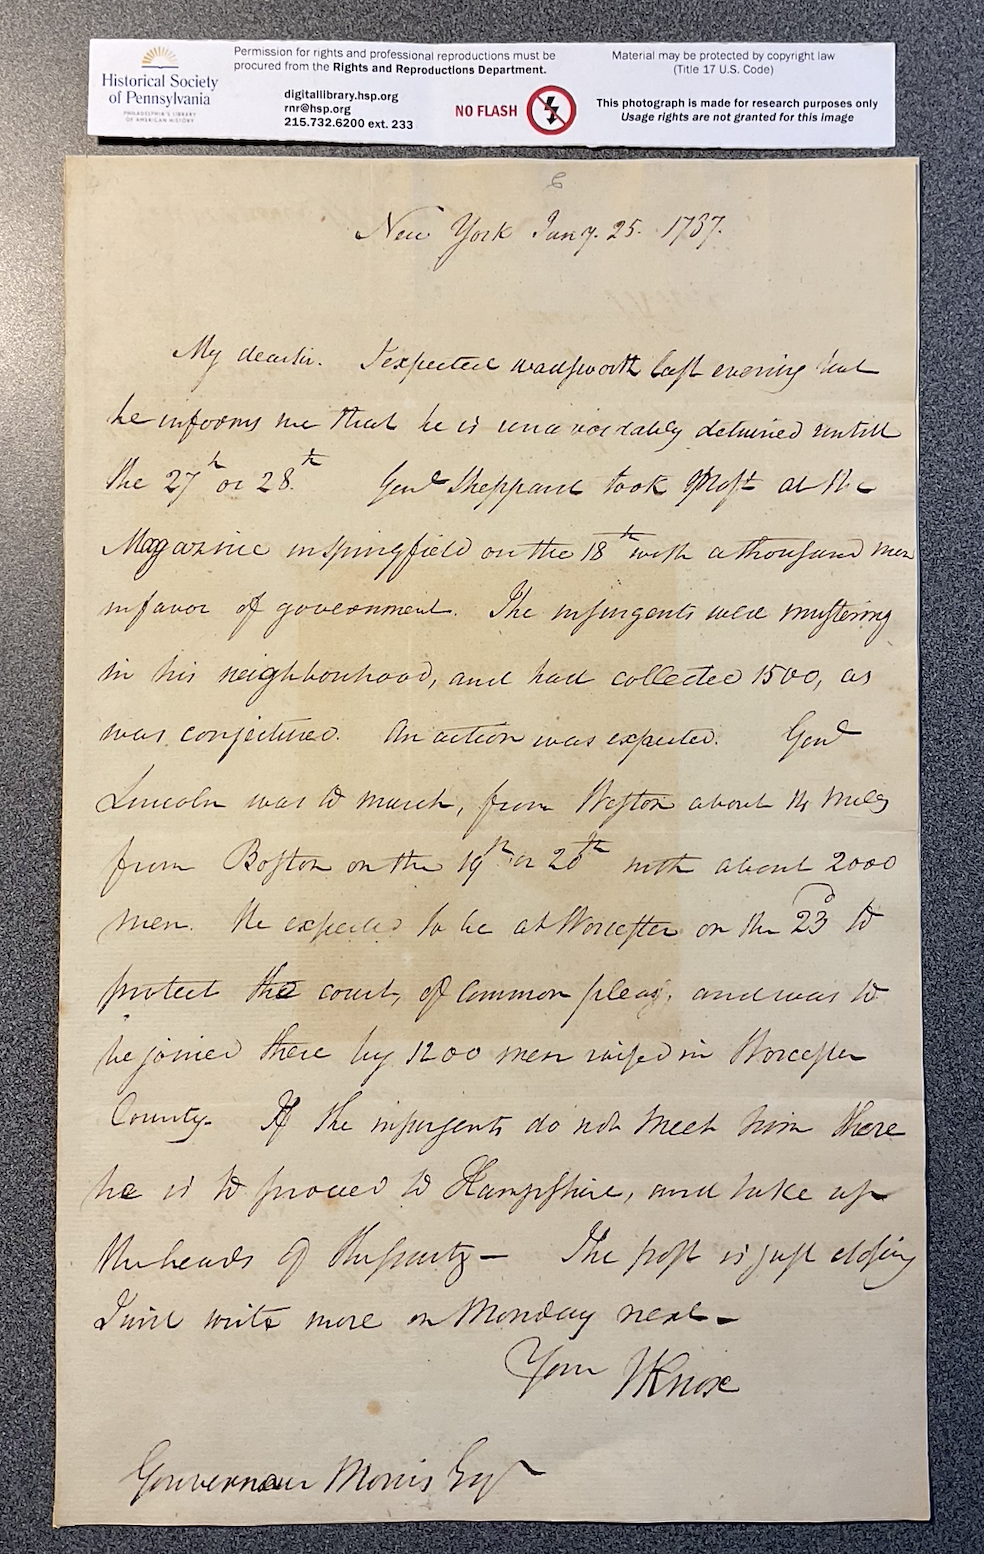 Historical Society
of Pennsylvania
PHILADELPHIA'S LIBRARY
OF AMERICAN HISTORY
Permission for rights and professional reproductions must be
procured from the Rights and Reproductions Department.
digitallibrary.hsp.org
rnr@hsp.org
215.732.6200 ext. 233
NO FLASH
Material may be protected by copyright law
(Title 17 U.S. Code)
This photograph is made for research purposes only
Usage rights are not granted for this image
6
New York Jany. 25. 1787.
My dear sir. I expected wadsworth last evening but
he informs me that he is unavoidably detained untill
the 27th or 28th. Genl Sheppard took Post at the
Magazine in springfield on the 18th with a thousand men
in favor of government. The insurgents were mustering
in his neighbourhood, and had collected 1500, as
was conjectured. An action was expected. Genl
Lincoln was to march, from Weston about 14 miles
from Boston on the 19th or 20th with about 2000
men. He expected to be at Worcester on the 23d to
protect the court, of Common pleas, and was to
be joined there by 1200 men raised in Worcester
County. If the insurgents do not meet him there
he is to proceed to Hampshire, and take up
the heads of the party— The post is just closing
I will write more on Monday next—
Your HKnox
Gouverneur Morris Esqr